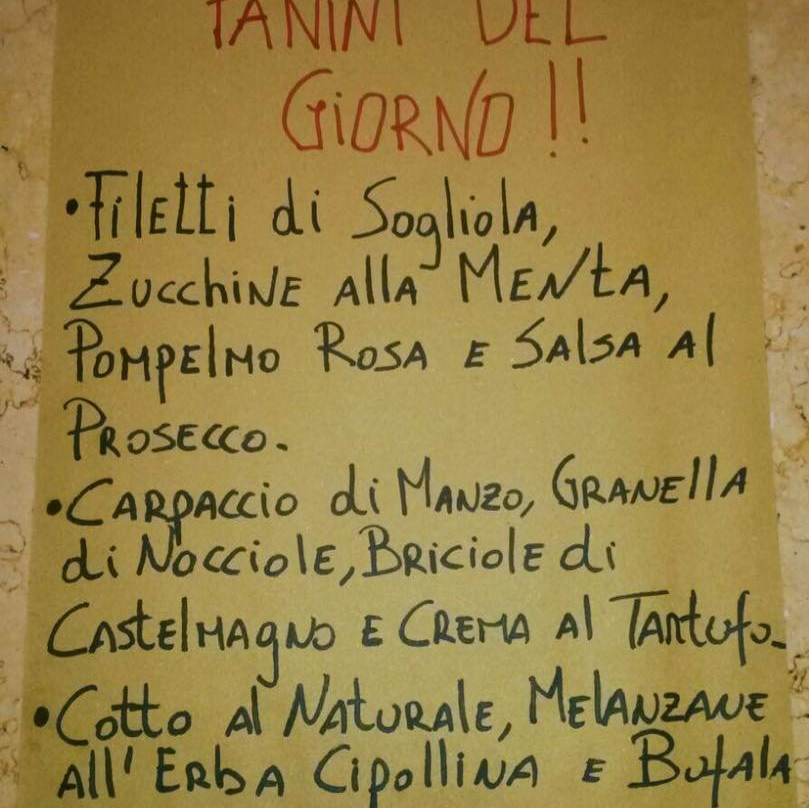 PANINI DEL
GiORNO!!
•Filetti di Sogliola,
Zucchine alla Menta,
Pompelmo Rosa e Salsa al
Prosecco.
•Carpaccio di Manzo, Granella
di Nocciole, Briciole di
Castelmagno e Crema al Tartufo.
•Cotto al Naturale, Melanzane
all'Erba Cipollina e Bufala